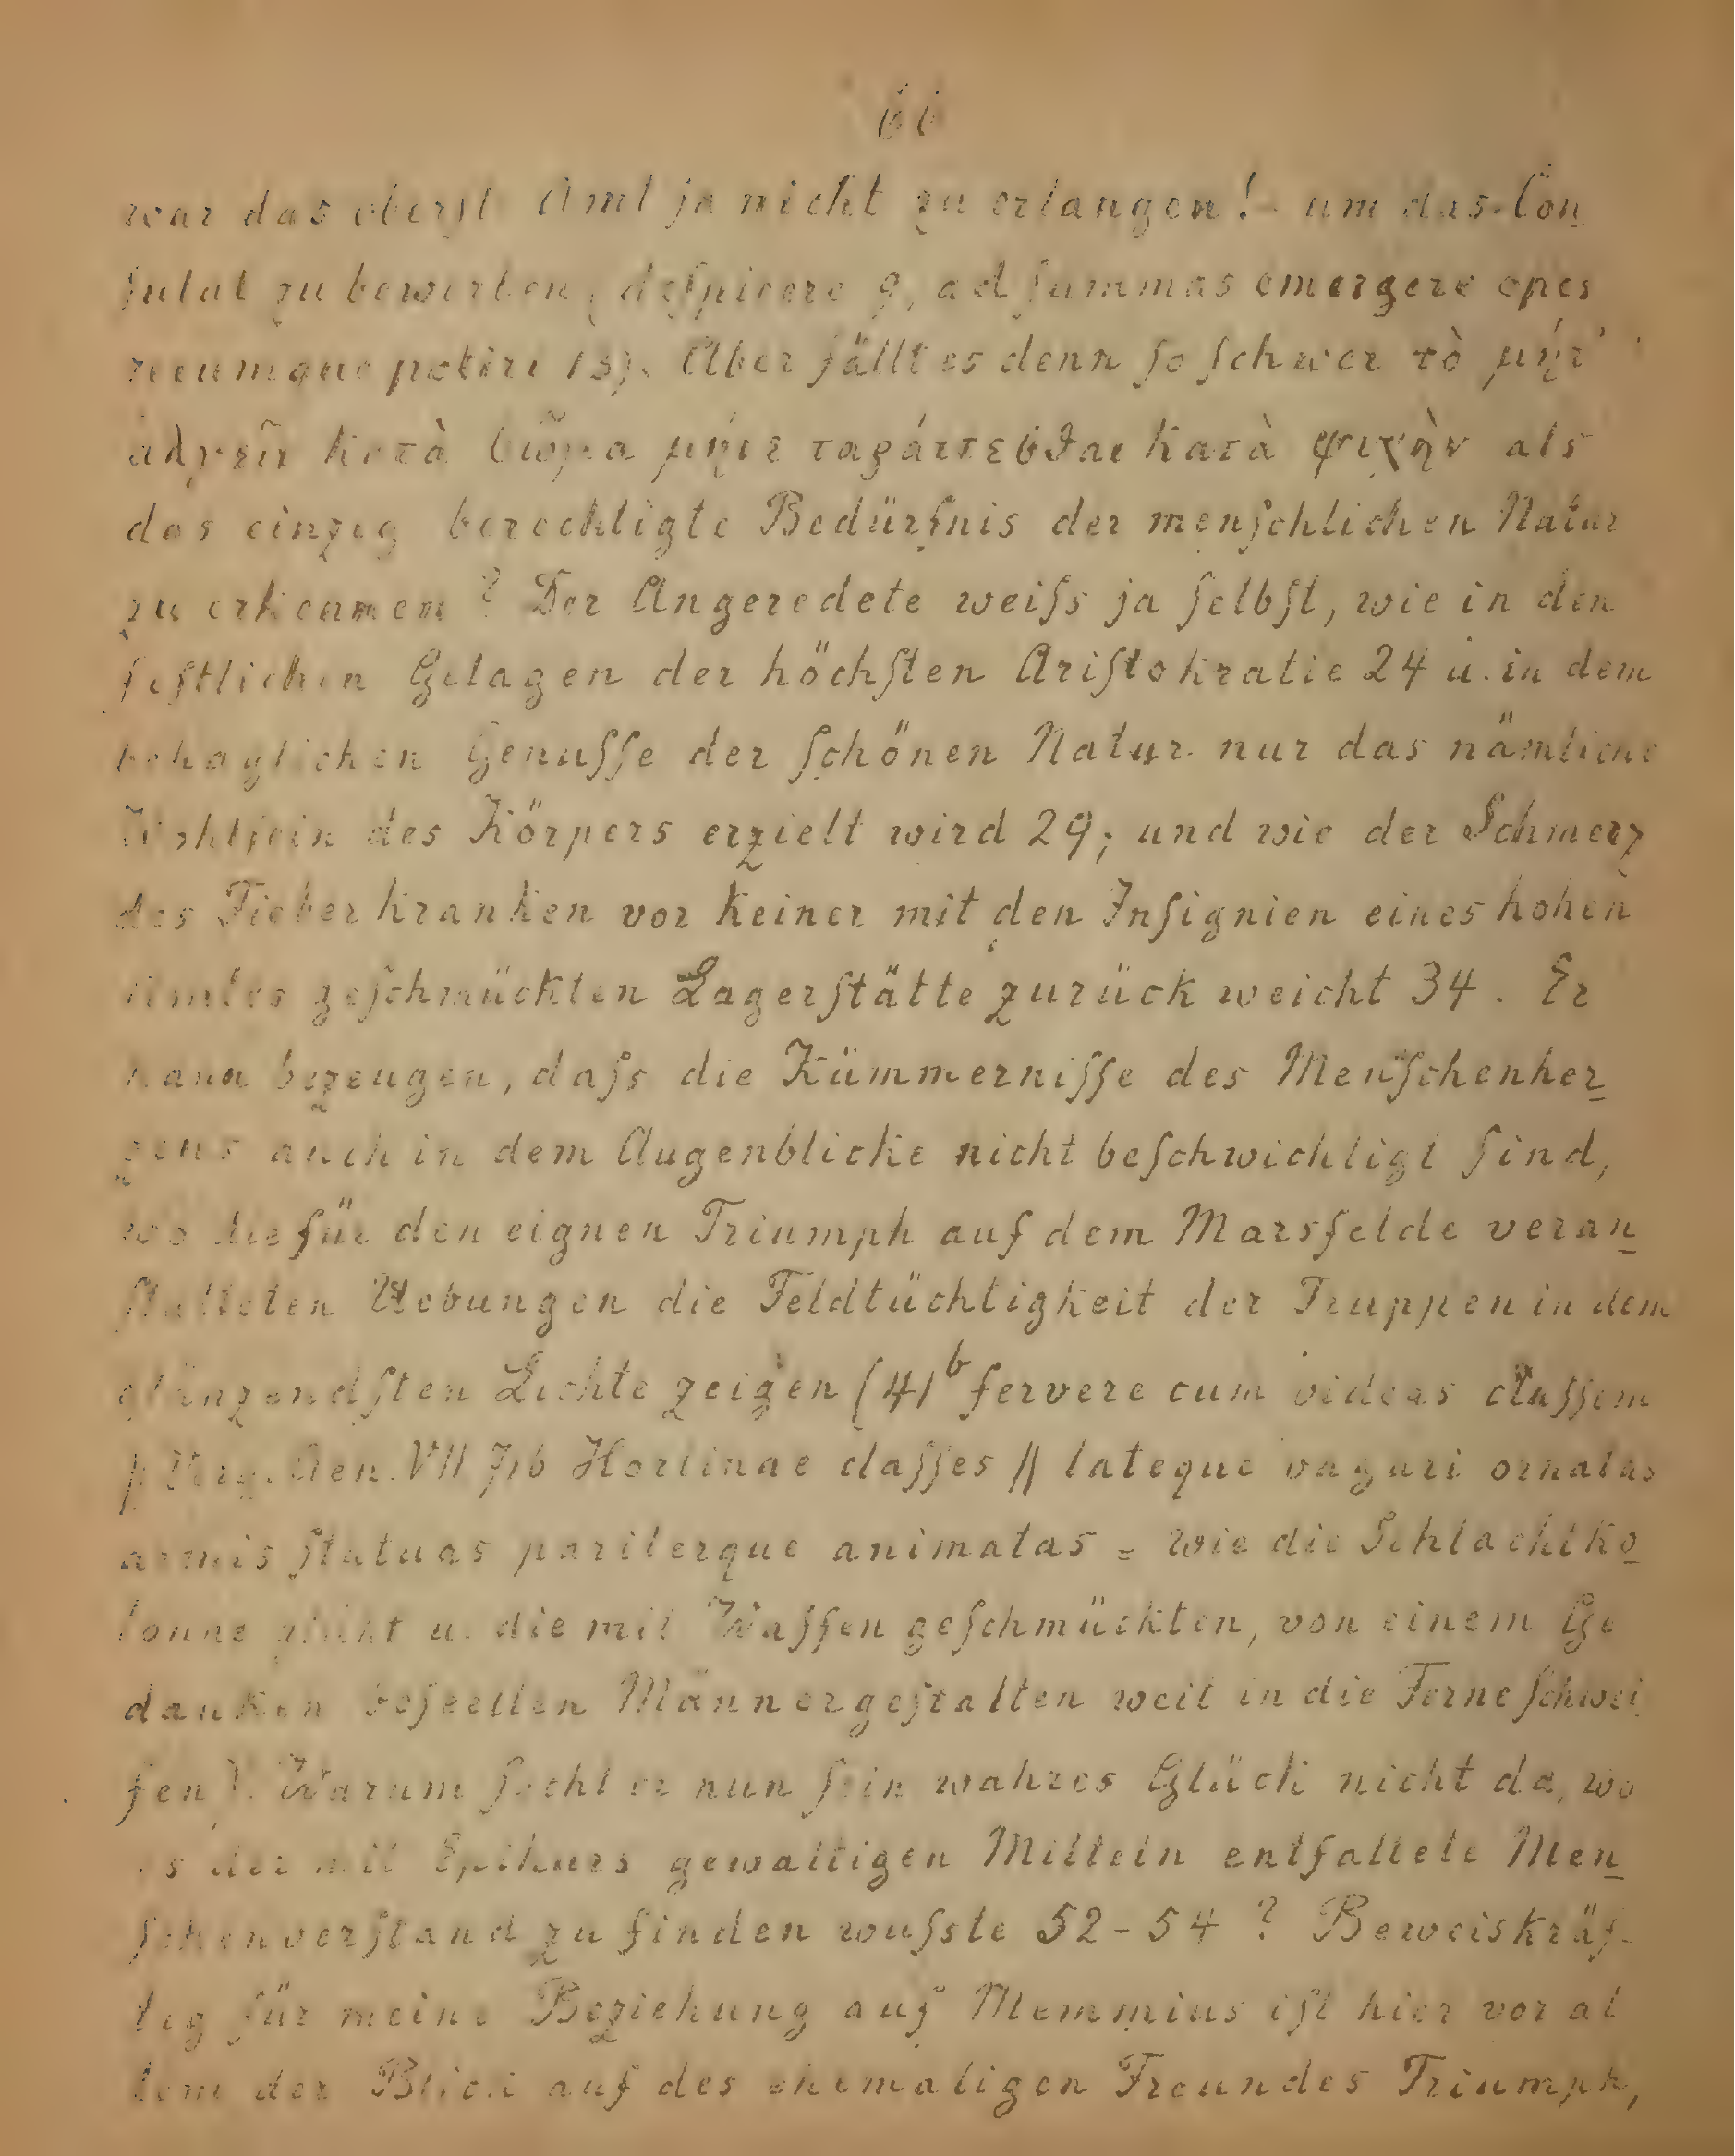 66
war das oberst Amt ja nicht zu erlangen! - um das Con
ſulat zu bewerben, deſpicere 9, ad ſummas emergere opes
rerumque potiri 13). Aber fällt es denn ſo ſchwer τὸ μήτ'
ἀλγεῖν κατὰ σῶμα μήτε ταράττεσθαι κατὰ ψυχὴν als
das einzig berechtigte Bedürfnis der menſchlichen Natur
zu erkennen? Der Angeredete weiſs ja ſelbſt, wie in den
feſtlichen Gelagen der höchſten Ariſtokratie 24 u. in dem
behaglichen Genuſſe der ſchönen Natur nur das nämliche
Wohlſein des Körpers erzielt wird 29; und wie der Schmerz
des Fieberkranken vor keiner mit den Inſignien eines hohen
Amtes geſchmückten Lagerſtätte zurück weicht 34. Er
kann bezeugen, daſs die Kümmerniſſe des Menſchenher
zens auch in dem Augenblicke nicht beſchwichtigt ſind,
wo die für den eignen Triumph auf dem Marsfelde veran
ſtalteten Uebungen die Feldtüchtigkeit der Truppen in dem
glänzendſten Lichte zeigen (41ᵇ fervere cum videas claſſem
Verg. Aen. VII 716 Hortinae claſſes || lateque vagari ornatas
armis ſtatuas pariterque animatas = wie die Schlachtko
lonne glüht u. die mit Waffen geſchmückten, von einem Ge
danken beſeelten Männergeſtalten weit in die Ferne ſchwei
fen). Warum ſucht er nun ſein wahres Glück nicht da, wo
es der mit Epikurs gewaltigen Mitteln entfaltete Men
ſchenverſtand zu finden wuſste 52-54? Beweiskräf-
tig für meine Beziehung auf Memmius iſt hier vor al
lem der Blick auf des ehemaligen Freundes Triumph,